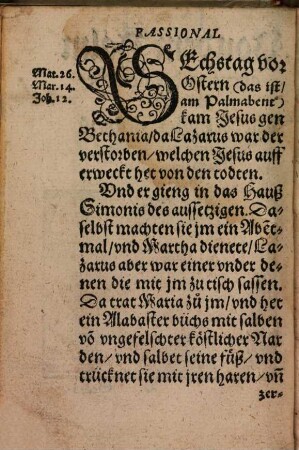 PASSIONAL
Mat. 26.
Mar. 14.
Joh. 12.
SEchstag vor
Ostern (das ist/
am Palmabent)
kam Jesus gen
Bethania/da Lazarus war der
verstorben/welchen Jesus auff
erweckt het von den todten.
Vnd er gieng in das Hauß
Simonis des aussetzigen. Da-
selbst machten sie jm ein Abēt-
mal/vnd Martha dienete/La-
zarus aber war einer vnder de-
nen die mit jm zu tisch sassen.
Da trat Maria zů jm/vnd het
ein Alabaster büchs mit salben
vō vngefelschter köstlicher Nar
den/vnd salbet seine füß/vnd
trücknet sie mit jren haren/vñ
zer-